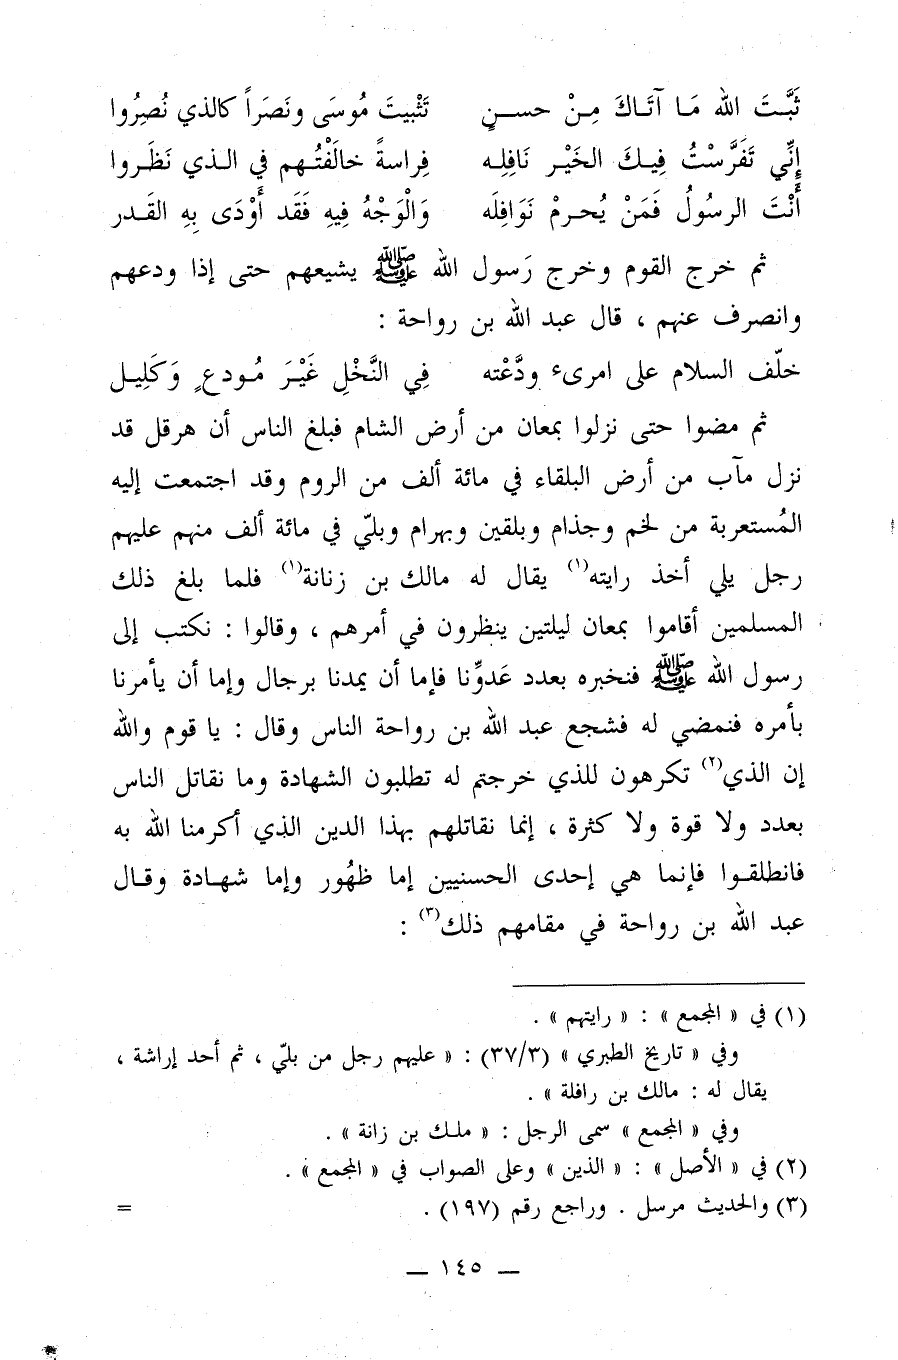 ثَبَّتَ الله مَا آتَاكَ مِنْ حسنٍ تَثْبِيتَ مُوسَى ونَصَراً كالذي نُصِرُوا
إِنِّي تَفَرَّسْتُ فِيكَ الخَيْر نَافِله فِراسةً خالَفْتُهم في الذي نَظَروا
أَنْتَ الرسُولُ فَمَنْ يُحرمْ نَوَافِلَه وَالْوَجْهُ فِيهِ فَقَد أَوْدَى بِهِ القَدر
ثم خرج القوم وخرج رَسول الله ﷺ يشيعهم حتى إذا ودعهم
وانصرف عنهم ، قال عبد الله بن رواحة :
خلّف السلام على امرىء ودَّعْته فِي النَّخْلِ غَيْرَ مُودعٍ وَكَلِيل
ثم مضوا حتى نزلوا بمعان من أرض الشام فبلغ الناس أن هرقل قد
نزل مآب من أرض البلقاء في مائة ألف من الروم وقد اجتمعت إليه
المُستعربة من لخم وجذام وبلقين وبهرام وبليّ في مائة ألف منهم عليهم
رجل يلي أخذ رايته(١) يقال له مالك بن زنانة(١) فلما بلغ ذلك
المسلمين أقاموا بمعان ليلتين ينظرون في أمرهم ، وقالوا : نكتب إلى
رسول الله ﷺ فنخبره بعدد عَدوِّنا فإما أن يمدنا برجال وإما أن يأمرنا
بأمره فنمضي له فشجع عبد الله بن رواحة الناس وقال : يا قوم والله
إن الذي(٢) تكرهون للذي خرجتم له تطلبون الشهادة وما نقاتل الناس
بعدد ولا قوة ولا كثرة ، إنما نقاتلهم بهذا الدين الذي أكرمنا الله به
فانطلقوا فإنما هي إحدى الحسنيين إما ظهُور وإما شهادة وقال
عبد الله بن رواحة في مقامهم ذلك(٣) :
(١) في « المجمع » : « رايتهم » .
وفي « تاريخ الطبري » (٣٧/٣) : « عليهم رجل من بليّ ، ثم أحد إراشة ،
يقال له : مالك بن رافلة » .
وفي « المجمع » سمى الرجل : « ملك بن زانة » .
(٢) في « الأصل » : « الذين » وعلى الصواب في « المجمع » .
(٣) والحديث مرسل . وراجع رقم (١٩٧) . =
— ١٤٥ —